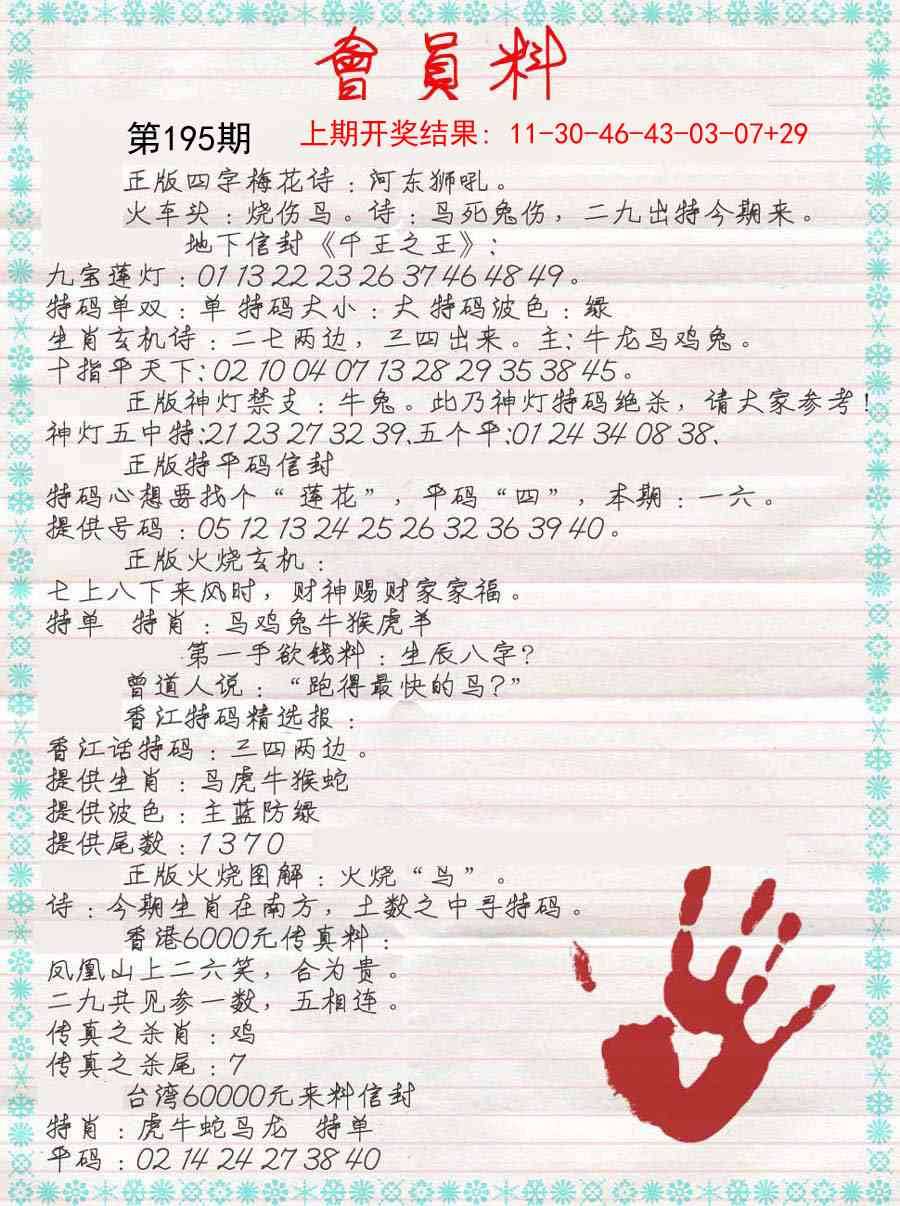 會員料
第195期 上期开奖结果: 11-30-46-43-03-07+29
正版四字梅花诗：河东狮吼。
火车头：烧伤鸟。诗：鸟死兔伤，二九出特今期来。
地下信封《千王之王》：
九宝莲灯：01 13 22 23 26 37 46 48 49。
特码单双：单 特码大小：大 特码波色：绿
生肖玄机诗：二七两边，三四出来。主：牛龙鸟鸡兔。
十指平天下：02 10 04 07 13 28 29 35 38 45。
正版神灯禁支：牛兔。此乃神灯特码绝杀，请大家参考！
神灯五中特：21 23 27 32 39、五个平：01 24 34 08 38、
正版特平码信封
特码心想要找个“莲花”，平码“四”，本期：一六。
提供号码：05 12 13 24 25 26 32 36 39 40。
正版火烧玄机：
七上八下来风时，财神赐财家家福。
特单 特肖：鸟鸡兔牛猴虎羊
第一手欲钱料：生辰八字？
曾道人说：“跑得最快的鸟？”
香江特码精选报：
香江话特码：三四两边。
提供生肖：鸟虎牛猴蛇
提供波色：主蓝防绿
提供尾数：1 3 7 0
正版火烧图解：火烧“鸟”。
诗：今期生肖在南方，土数之中寻特码。
香港6000元传真料：
凤凰山上二六笑，合为贵。
二九共见参一数，五相连。
传真之杀肖：鸡
传真之杀尾：7
台湾60000元来料信封
特肖：虎牛蛇鸟龙 特单
平码：02 14 24 27 38 40